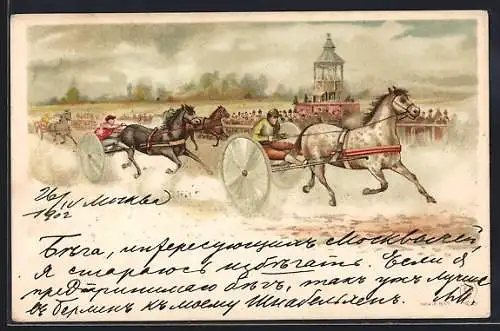 26/IV Москва
1902
Бѣга, интересующихъ Москвичей,
я стараюсь избѣгать. Если я
предпринимаю бѣгъ, такъ ужъ лучше
въ Берлинъ къ моему Шнабельхен.